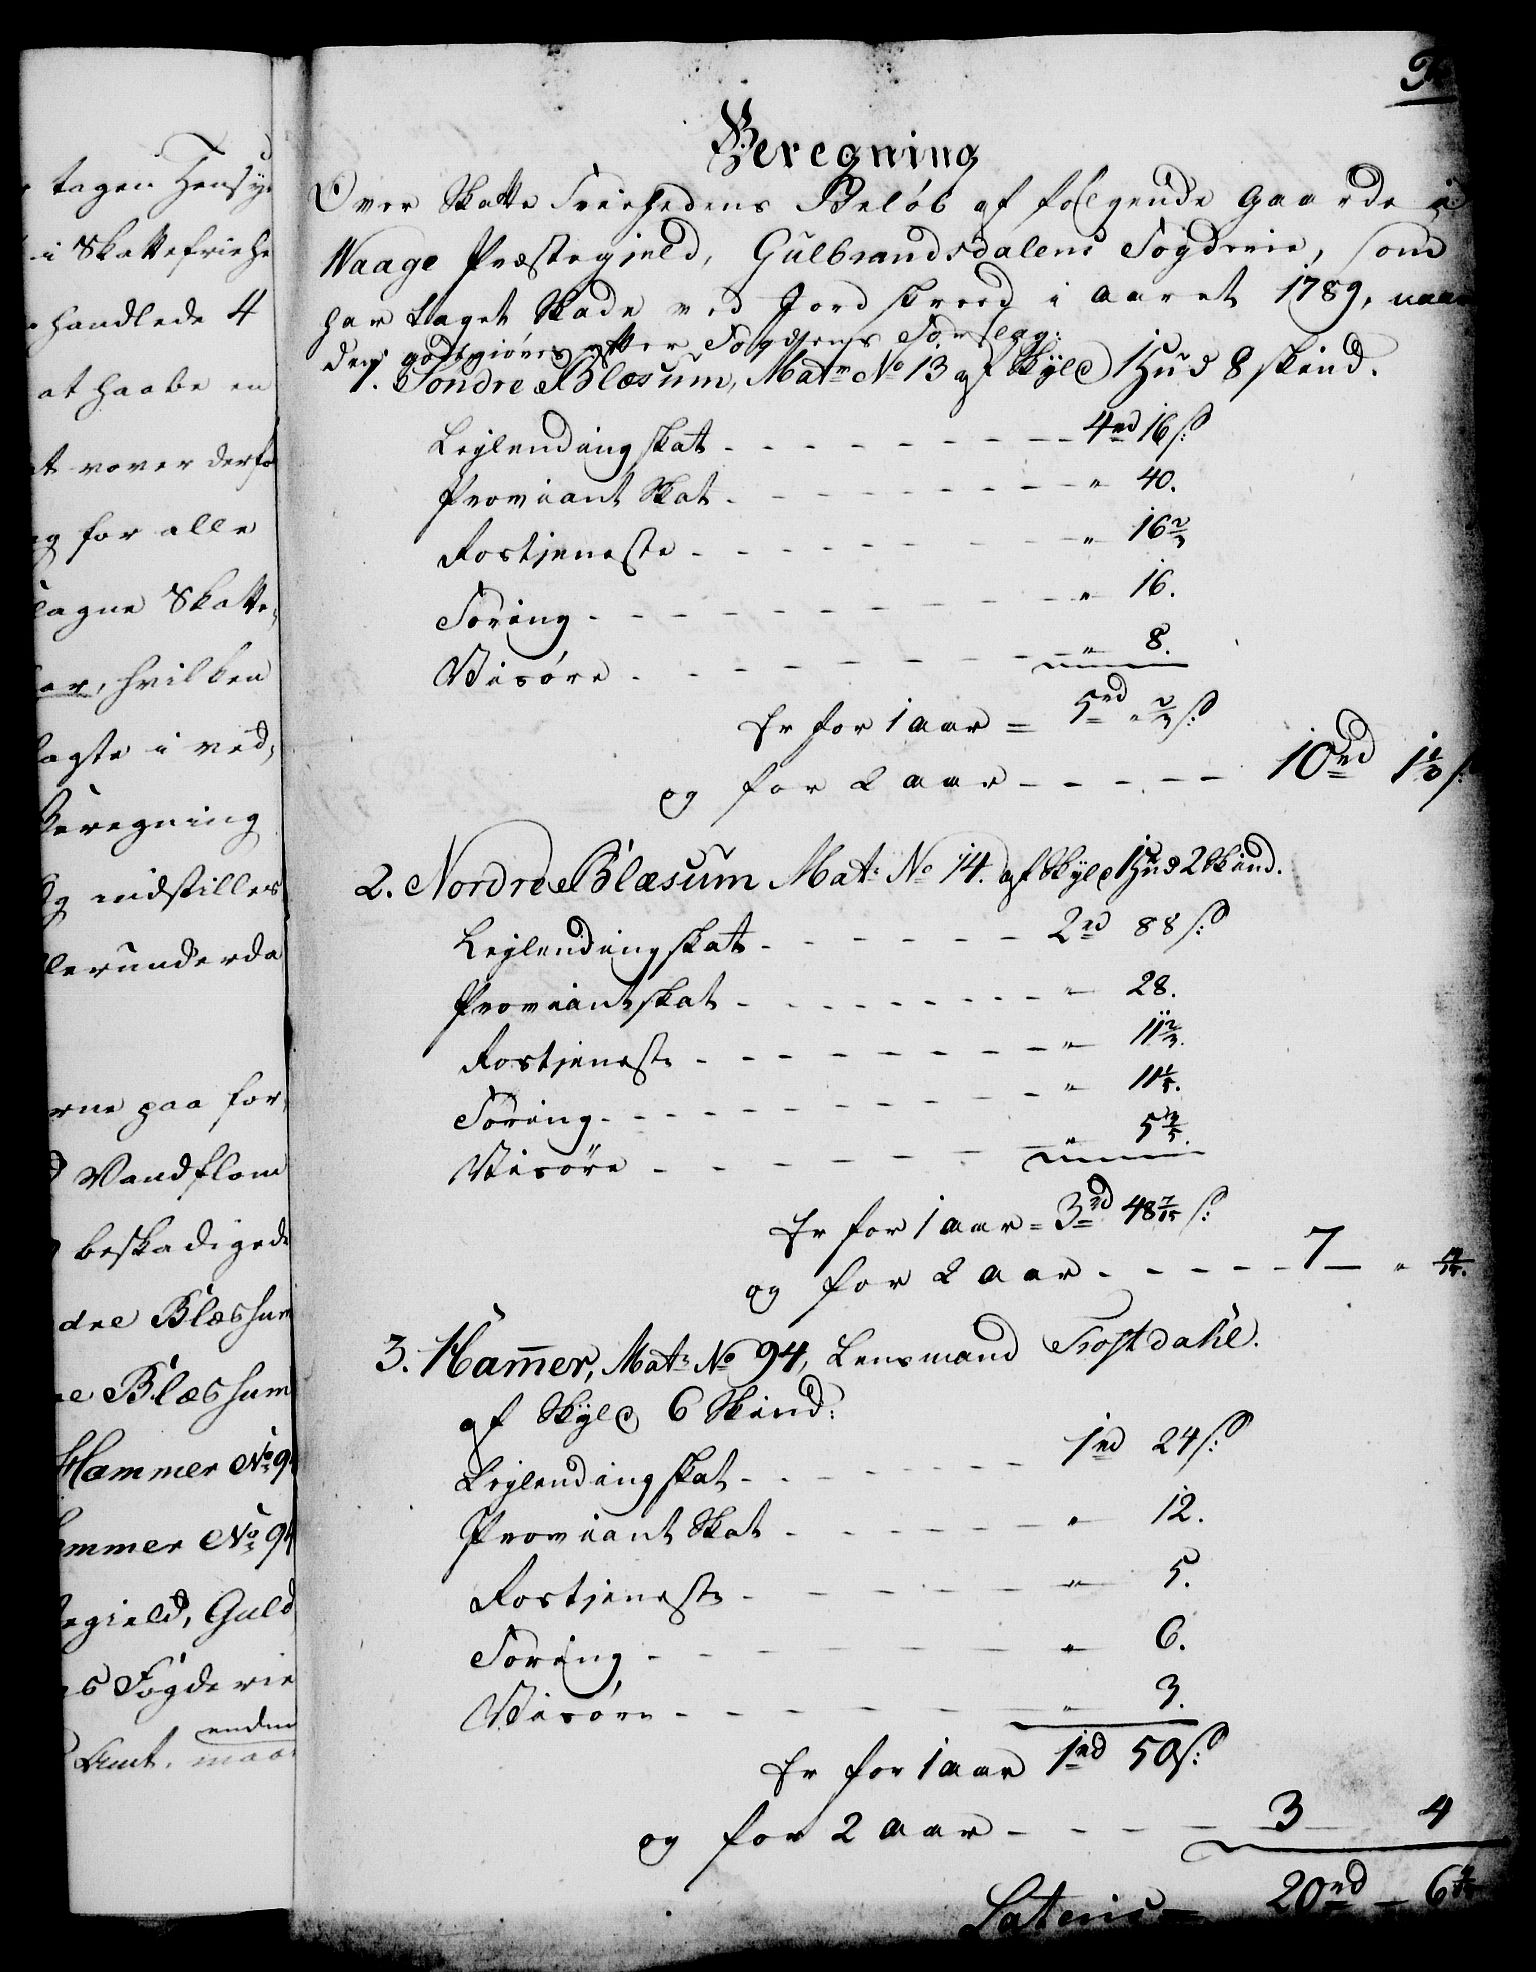 tagen Hensyn
i Skattefriehe
handlede 4
at haabe en
at vover derfo
og for alle
lagne Skatte-
ar, hvilken
lagte i ved-
Beregning
og indstilles
allerunderda
rne paa for-
Vandflom
beskadigede
dre Blæshum
re Blæshum
Hammer No 9
ammer No 94
egield, Guld
ns Fögderie
Amt, endnu
Beregning
Over Skatte Friehedens Belöb af fölgende Gaarde i
Waage Præstegjeld, Gulbrandsdalens Fogderie, som
har taget Skade ved Jordskreed i Aaret 1789, naar
den godtgiöres efter Fogdens Forslag:
1. Söndre Blæsum, Matr No 13 af Skyld 1 Hud 8 skind.
Leylendingskat - - - - 4 rd 16 s:
Proviant Skat - - - - " 40.
Rostjeneste - - - - " 16 2/3
Foring - - - - " 16.
Visöre - - - - " 8.
Er for 1 aar = 5 rd " 2/3 s:
og for 2 aar - - - - 10 rd 1 1/3 s:
2. Nordre Blæsum Matr No 14. af Skyld 1 Hud 2 Skind.
Leylendingskat - - - - 2 rd 88 s:
Proviantskat - - - - " 28.
Rostjeneste - - - - " 11 2/3.
Foring - - - - " 11 1/5.
Visöre - - - - " 5 3/5.
Er for 1 aar = 3 rd 48 7/15 s:
og for 2 aar - - - - 7 — " 14/15.
3. Ham̅er, Matr No 94, Lensmand Trostdahl.
af Skyld 6 Skind:
Leylendingskat - - - - 1 rd 24 s:
Proviant Skat - - - - " 12.
Rostjeneste - - - - " 5.
Foring - - - - " 6.
Visöre - - - - " 3.
Er for 1 aar 1 rd 50 s:
og for 2 aar - - - - 3 — 4
Lateris = 20 rd — 6